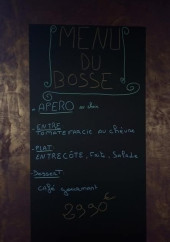 MENU
DU
BOSSE
- APERO
- ENTRE
TOMATE FARCIE au chèvre
- PLAT
ENTRECÔTE, Frit, Salade
- DESSERT
café gourmant
29.90€